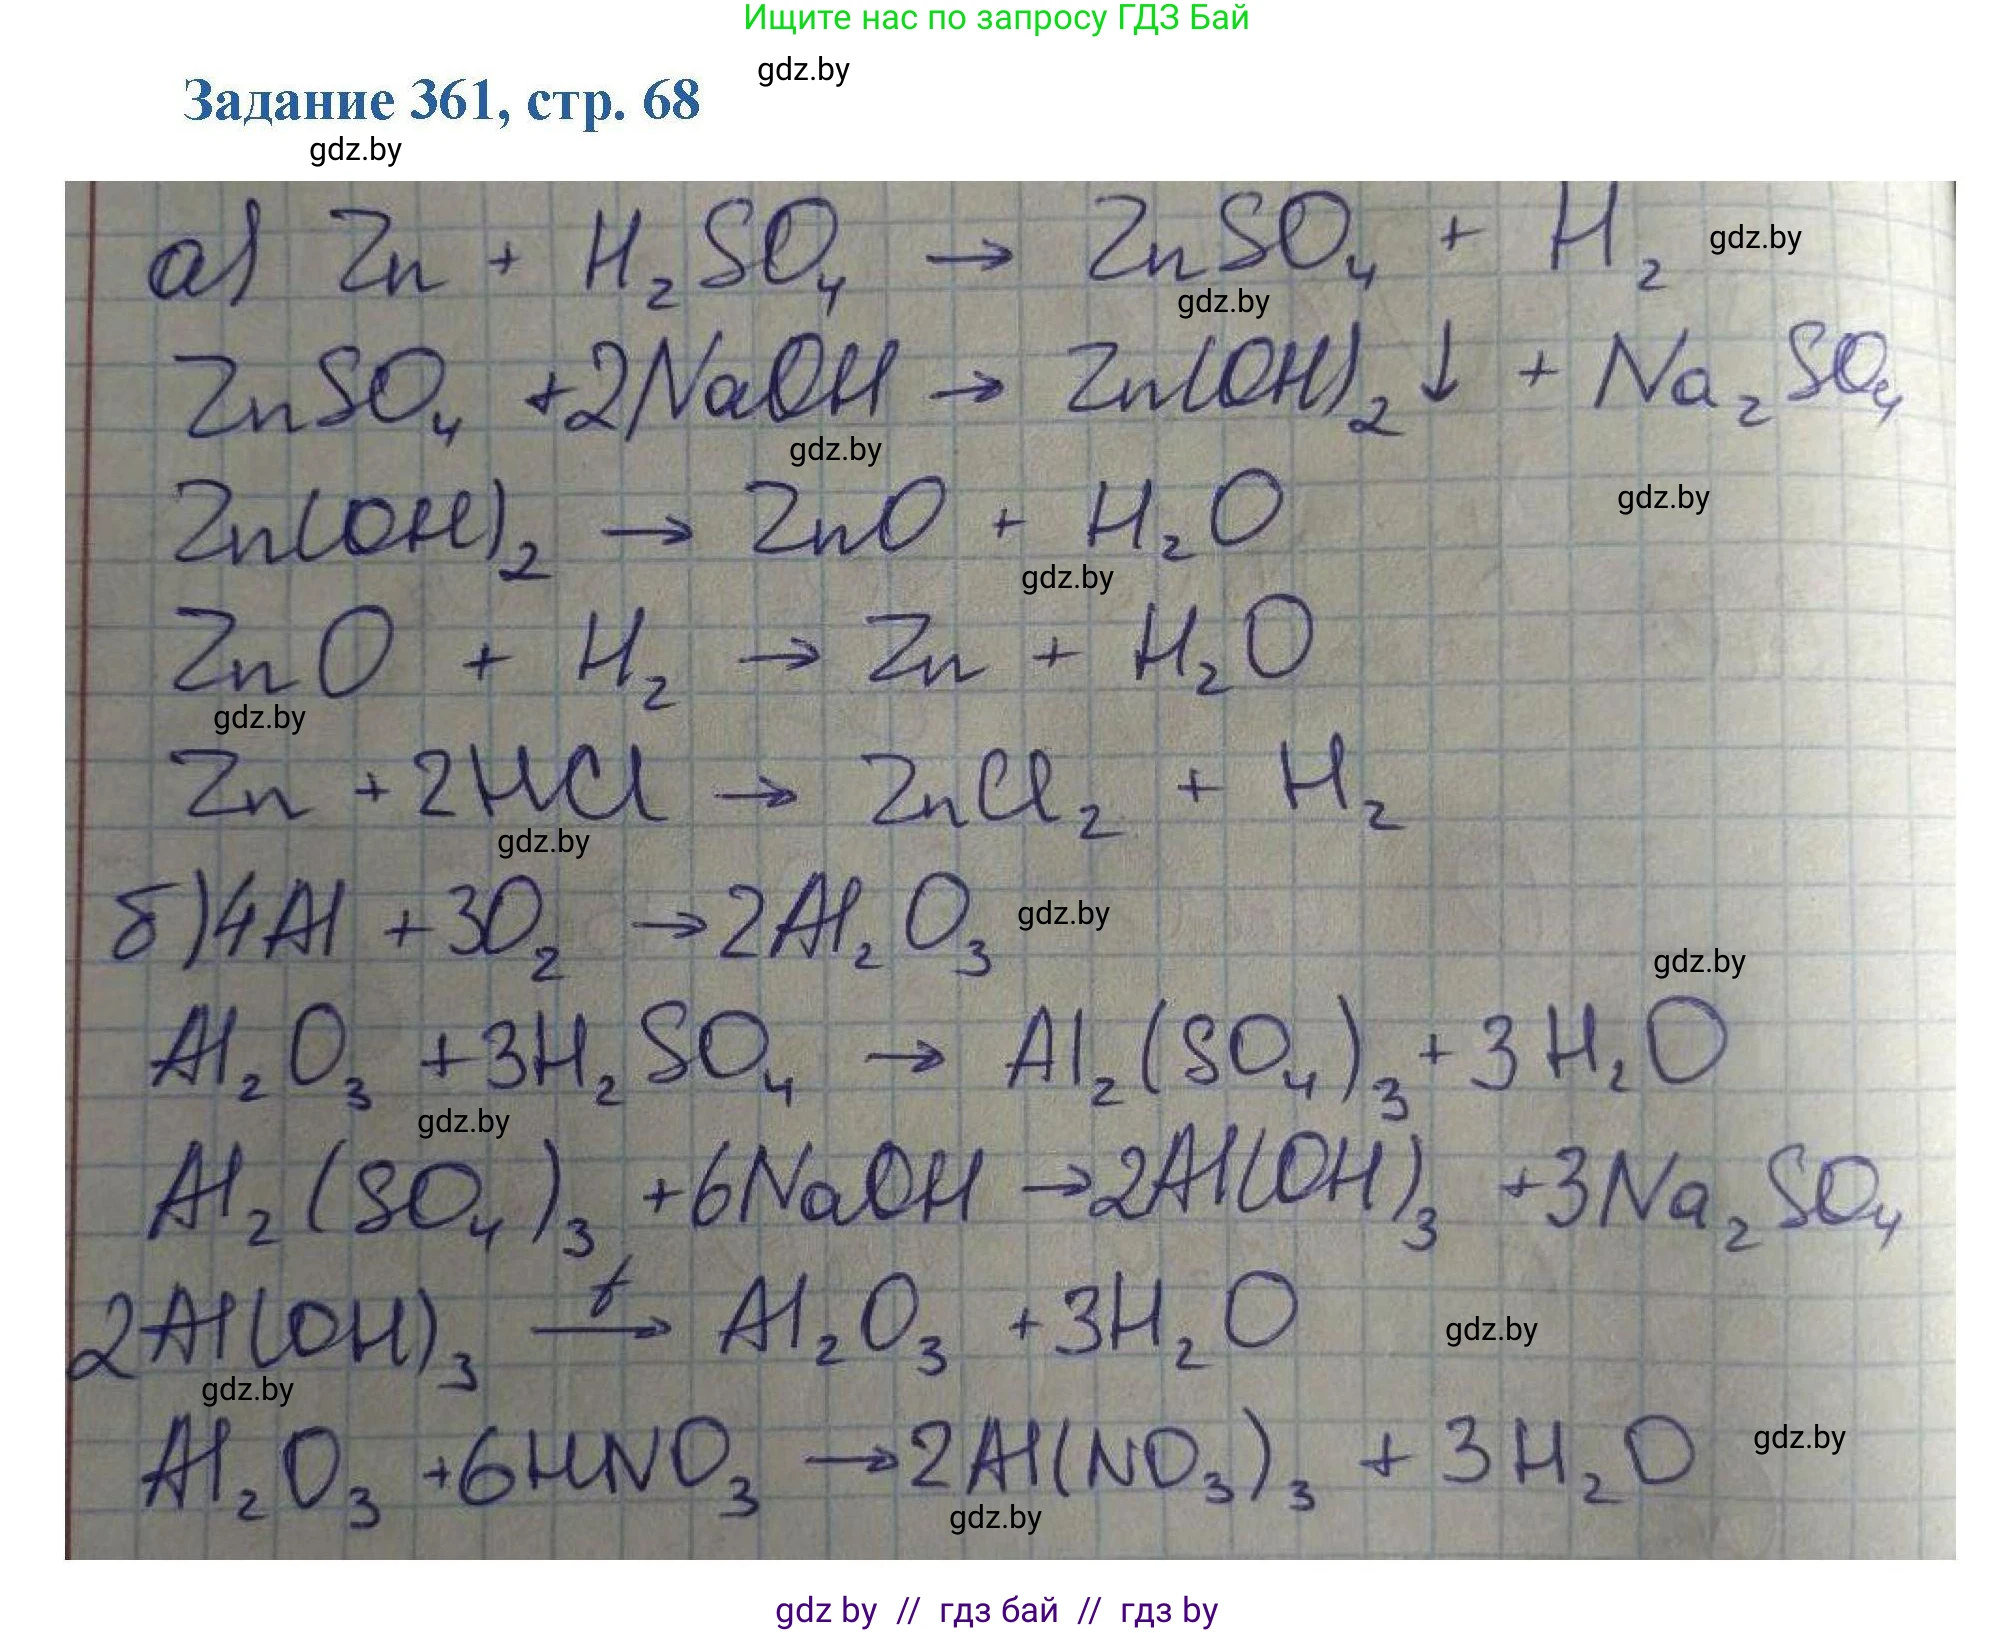 Ищите нас по запросу ГДЗ Бай
gdz.by
Задание 361, стр. 68
gdz.by
а) Zn + H₂SO₄ → ZnSO₄ + H₂
gdz.by
gdz.by
ZnSO₄ +2NaOH → Zn(OH)₂↓ + Na₂SO₄
gdz.by
gdz.by
Zn(OH)₂ → ZnO + H₂O
gdz.by
ZnO + H₂ → Zn + H₂O
gdz.by
Zn +2HCl → ZnCl₂ + H₂
gdz.by
б)4Al +3O₂ →2Al₂O₃
gdz.by
gdz.by
Al₂O₃ +3H₂SO₄ → Al₂(SO₄)₃+3H₂O
gdz.by
Al₂(SO₄)₃ +6NaOH →2Al(OH)₃ +3Na₂SO₄
2Al(OH)₃ t→ Al₂O₃ +3H₂O
gdz.by
gdz.by
Al₂O₃ +6HNO₃ →2Al(NO₃)₃ + 3H₂O
gdz.by
gdz.by
gdz by // гдз бай // гдз by